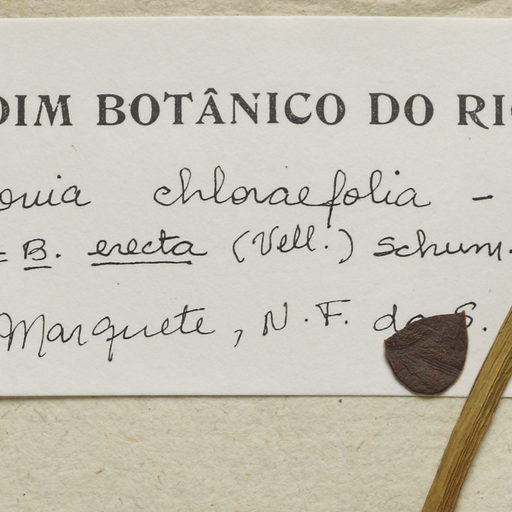 DIM BOTÂNICO DO RI
onia chloraefolia -
= B. erecta (Vell.) Schum.
Marquete, N. F. da S.